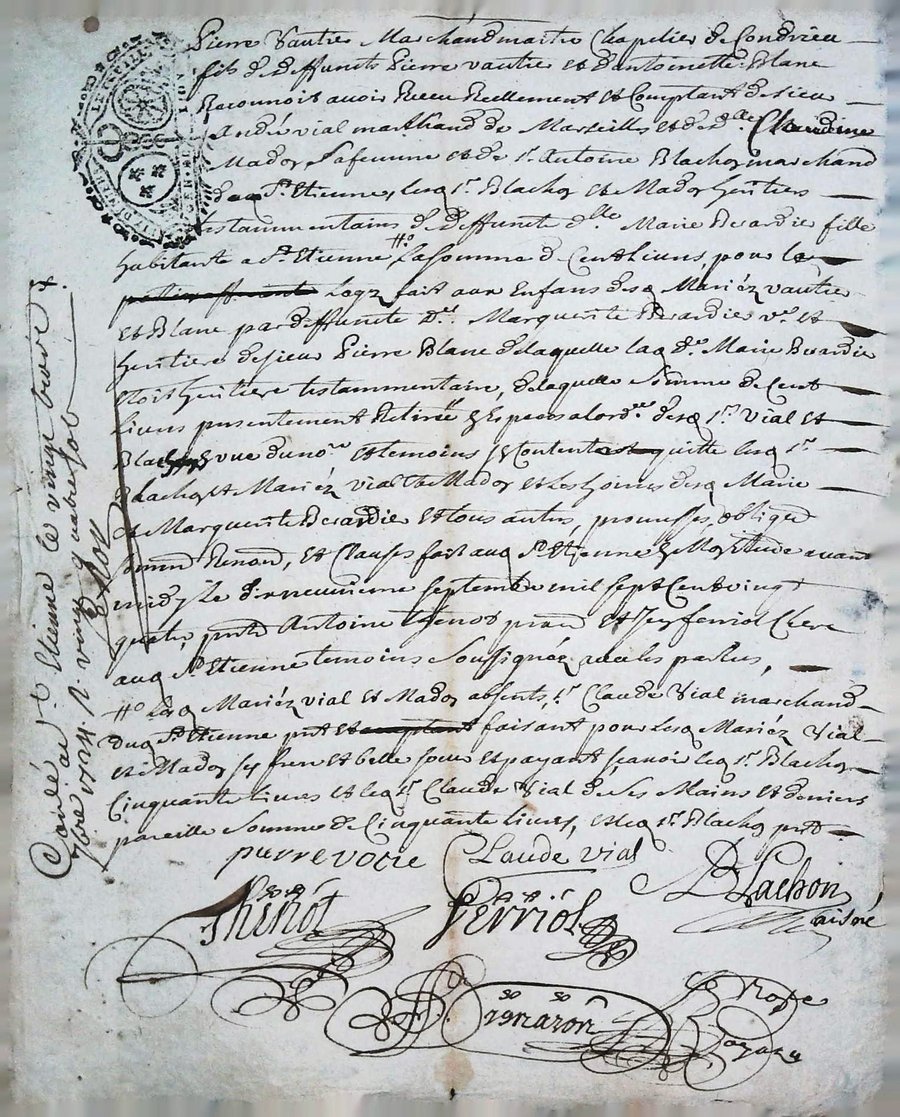 Pierre Vautier Marchand maitre Chapelier de Condrieu
fils de deffuncts Pierre vautier et d'antoinette Blanc
Reconnoit avoir Receu Reellement et Comptant de sieur
André vial marchand de Marseille et de d.lle Claudine
Mador sa femme et de s.r Antoine Blachon marchand
dud. St. Etienne, lesq. s.r Blachon et Mador heritiers
testammentaires de deffuncte d.lle Marie Berardier fille
habitante a St. Etienne # la somme de Cent livres, pour le
Legz fait aux Enfans desq. Mariéz vautier
et Blanc par deffuncte D.lle Marguerite Berardier v.ve et
heritiere de sieur Pierre Blanc de laquelle laq. d.lle Marie Berardier
Etoit heritiere testammentaire, de laquelle somme de Cent
livres presentement Retirée En Especes a lord.re desq. s.rs Vial et
Blachon vue du no.re et temoins se Contente et quitte lesq. s.rs
Blachon et Mariéz vial et Mador et les hoirs desq. Marie
et Marguerite Berardier et tous autres, promesses, obliga.
Renon., et Clauses fait aud. St. Etienne En Mon Etude avant
midy le dixneuvieme septembre mil sept Cent vingt
quatre, pnts Antoine Thenot prat. et Ferriol Clerc
aud. St. Etienne temoins soussignéz avec les parties,
# lesq. Mariéz vial et Mador absents, s.r Claude Vial marchand
dud. St. Etienne pnt et faisant pour lesq. Mariéz Vial
et Mador ses frere et belle soeur et payant scavoir lesq. s.r Blachon
Cinquante livres et leq. s.r Claude Vial de ses Mains et deniers
pareille somme de Cinquante livres, et leq. s.r Blachon pnt
pierre votie Claude vial
Blachon
aisné
Thenot Ferriol
Controllé a St. Etienne le vingt trois
7bre 1724. R. vingt quatre sols